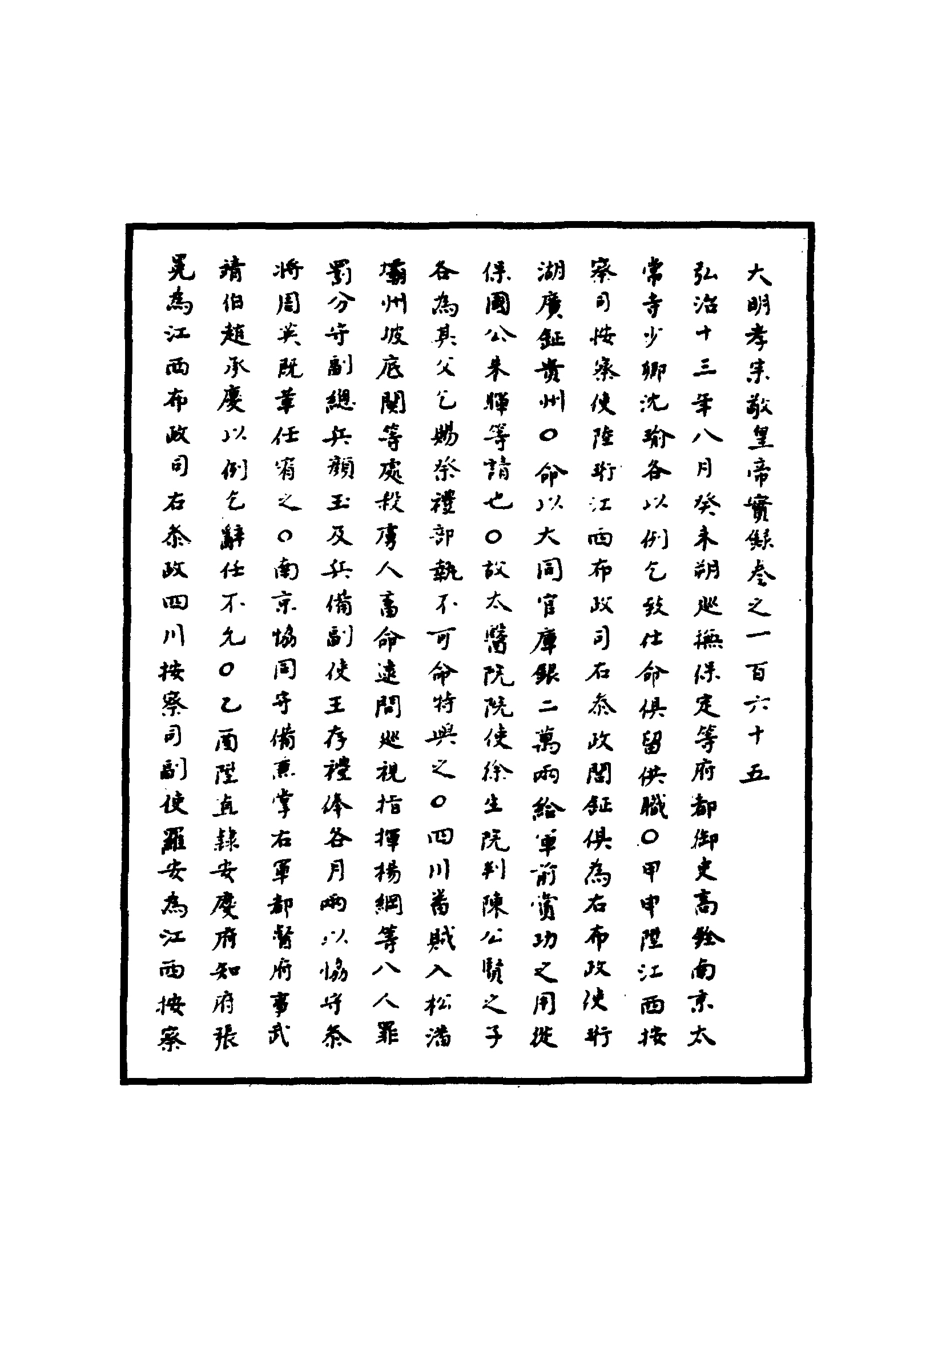 大明孝宗敬皇帝實錄卷之一百六十五
弘治十三年八月癸未朔巡撫保定等府都御史高銓南京太
常寺少卿沈瑜各以例乞致仕命俱留供職○甲申陞江西按
察司按察使陸珩江西布政司右叅政閻鉦俱為右布政使珩
湖廣鉦貴州○命以大同官庫銀二萬兩給軍前賞功之用從
保國公朱暉等請也○故太醫院院使徐生院判陳公賢之子
各為其父乞賜祭禮部執不可命特與之○四川番賊入松潘
壩州坡底関等處殺虜人畜命逮問巡視指揮楊綱等八人罪
罰分守副總兵顏玉及兵備副使王存禮俸各月兩以恊守叅
將周英既革任宥之○南京恊同守備兼掌右軍都督府事武
靖伯趙承慶以例乞辭任不允○乙酉陞直隸安慶府知府張
晃為江西布政司右叅政四川按察司副使羅安為江西按察